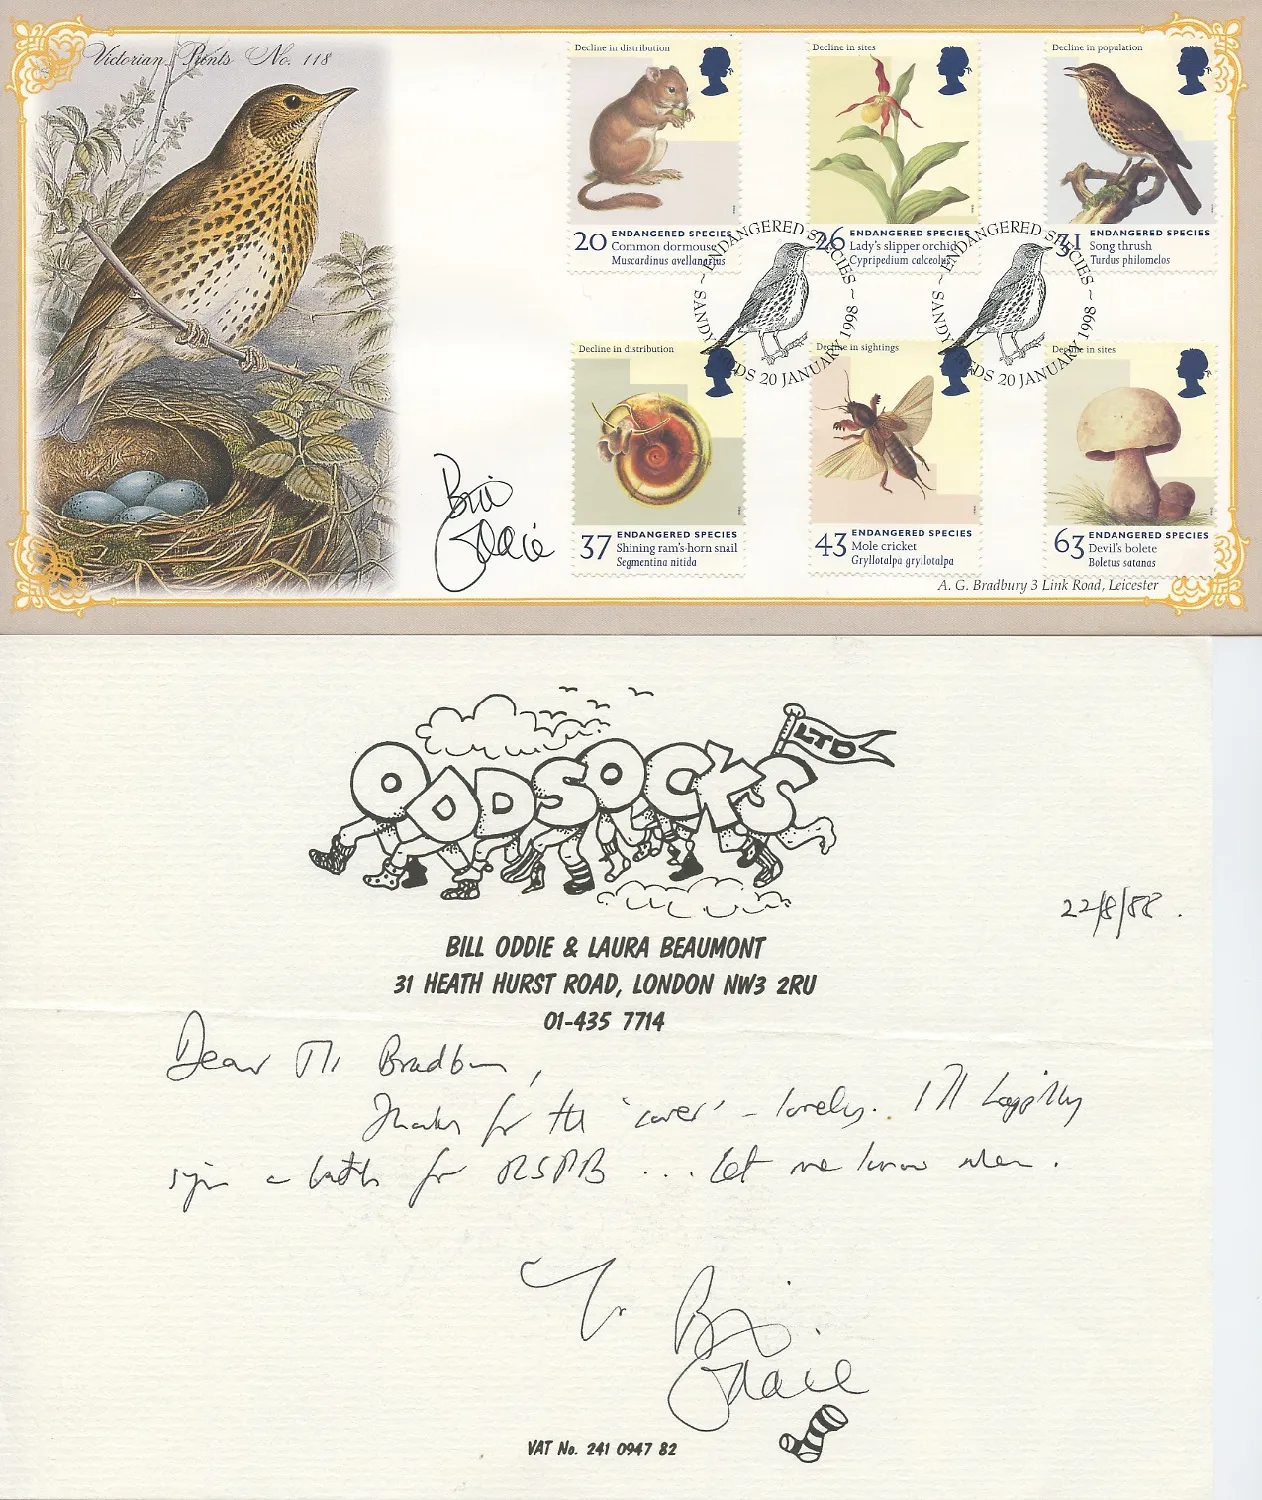 Victorian Prints No. 118
Decline in distribution
20 ENDANGERED SPECIES
Common dormouse
Muscardinus avellanarius
Decline in sites
26 ENDANGERED SPECIES
Lady's slipper orchid
Cypripedium calceolus
Decline in population
31 ENDANGERED SPECIES
Song thrush
Turdus philomelos
~ ENDANGERED SPECIES ~ SANDY BEDS 20 JANUARY 1998
~ ENDANGERED SPECIES ~ SANDY BEDS 20 JANUARY 1998
Decline in distribution
37 ENDANGERED SPECIES
Shining ram's-horn snail
Segmentina nitida
Decline in sightings
43 ENDANGERED SPECIES
Mole cricket
Gryllotalpa gryllotalpa
Decline in sites
63 ENDANGERED SPECIES
Devil's bolete
Boletus satanas
Bill
Oddie
A. G. Bradbury 3 Link Road, Leicester
ODDSOCKS LTD
22/8/88.
BILL ODDIE & LAURA BEAUMONT
31 HEATH HURST ROAD, LONDON NW3 2RU
01-435 7714
Dear Mr Bradbury,
Thanks for the 'cover' - lovely. I'll happily
sign a batch for RSPB ... let me know when.
Bill
Oddie
VAT No. 241 0947 82